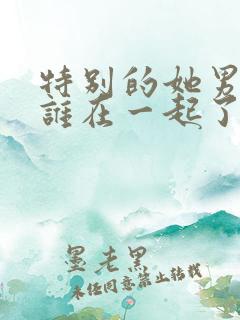 特别的她男
誰在一起了
墨老黑
未经同意禁止转载